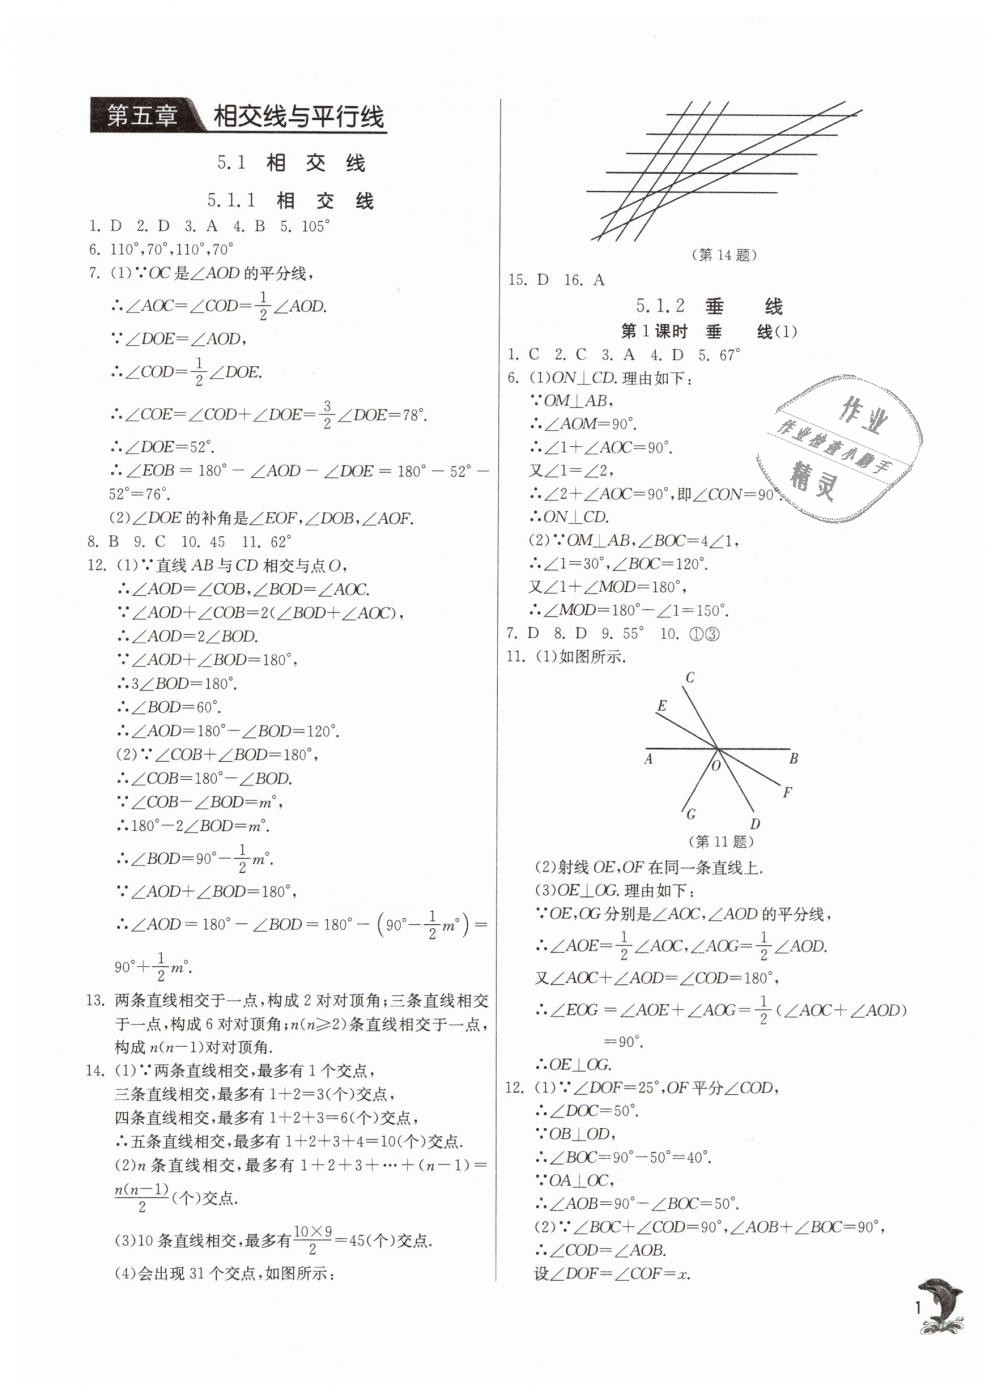 第五章 相交线与平行线
5.1 相 交 线
5.1.1 相 交 线
1. D 2. D 3. A 4. B 5. 105°
6. 110°,70°,110°,70°
7. (1)∵OC是∠AOD的平分线,
∴∠AOC=∠COD=1/2∠AOD.
∵∠DOE=∠AOD,
∴∠COD=1/2∠DOE.
∴∠COE=∠COD+∠DOE=3/2∠DOE=78°.
∴∠DOE=52°.
∴∠EOB=180°-∠AOD-∠DOE=180°-52°-
52°=76°.
(2)∠DOE的补角是∠EOF,∠DOB,∠AOF.
8. B 9. C 10. 45 11. 62°
12. (1)∵直线AB与CD相交与点O,
∴∠AOD=∠COB,∠BOD=∠AOC.
∵∠AOD+∠COB=2(∠BOD+∠AOC),
∴∠AOD=2∠BOD.
∵∠AOD+∠BOD=180°,
∴3∠BOD=180°.
∴∠BOD=60°.
∴∠AOD=180°-∠BOD=120°.
(2)∵∠COB+∠BOD=180°,
∴∠COB=180°-∠BOD.
∵∠COB-∠BOD=m°,
∴180°-2∠BOD=m°.
∴∠BOD=90°-1/2m°.
∵∠AOD+∠BOD=180°,
∴∠AOD=180°-∠BOD=180°-(90°-1/2m°)=
90°+1/2m°.
13. 两条直线相交于一点,构成2对对顶角;三条直线相交
于一点,构成6对对顶角;n(n≥2)条直线相交于一点,
构成n(n-1)对对顶角.
14. (1)∵两条直线相交,最多有1个交点,
三条直线相交,最多有1+2=3(个)交点,
四条直线相交,最多有1+2+3=6(个)交点,
∴五条直线相交,最多有1+2+3+4=10(个)交点.
(2)n条直线相交,最多有1+2+3+…+(n-1)=
n(n-1)/2(个)交点.
(3)10条直线相交,最多有10×9/2=45(个)交点.
(4)会出现31个交点,如图所示:
(第14题)
15. D 16. A
5.1.2 垂 线
第1课时 垂 线(1)
1. C 2. C 3. A 4. D 5. 67°
6. (1)ON⊥CD.理由如下:
∵OM⊥AB,
∴∠AOM=90°.
∴∠1+∠AOC=90°.
又∠1=∠2,
∴∠2+∠AOC=90°,即∠CON=90°.
∴ON⊥CD.
(2)∵OM⊥AB,∠BOC=4∠1,
∴∠1=30°,∠BOC=120°.
又∠1+∠MOD=180°,
∴∠MOD=180°-∠1=150°.
7. D 8. D 9. 55° 10. ①③
11. (1)如图所示.
C
E
A
O
B
F
G
D
(第11题)
(2)射线OE,OF在同一条直线上.
(3)OE⊥OG.理由如下:
∵OE,OG分别是∠AOC,∠AOD的平分线,
∴∠AOE=1/2∠AOC,∠AOG=1/2∠AOD.
又∠AOC+∠AOD=∠COD=180°,
∴∠EOG=∠AOE+∠AOG=1/2(∠AOC+∠AOD)
=90°.
∴OE⊥OG.
12. (1)∵∠DOF=25°,OF平分∠COD,
∴∠DOC=50°.
∵OB⊥OD,
∴∠BOC=90°-50°=40°.
∵OA⊥OC,
∴∠AOB=90°-∠BOC=50°.
(2)∵∠BOC+∠COD=90°,∠AOB+∠BOC=90°,
∴∠COD=∠AOB.
设∠DOF=∠COF=x.
作业
作业检查小助手
精灵
1